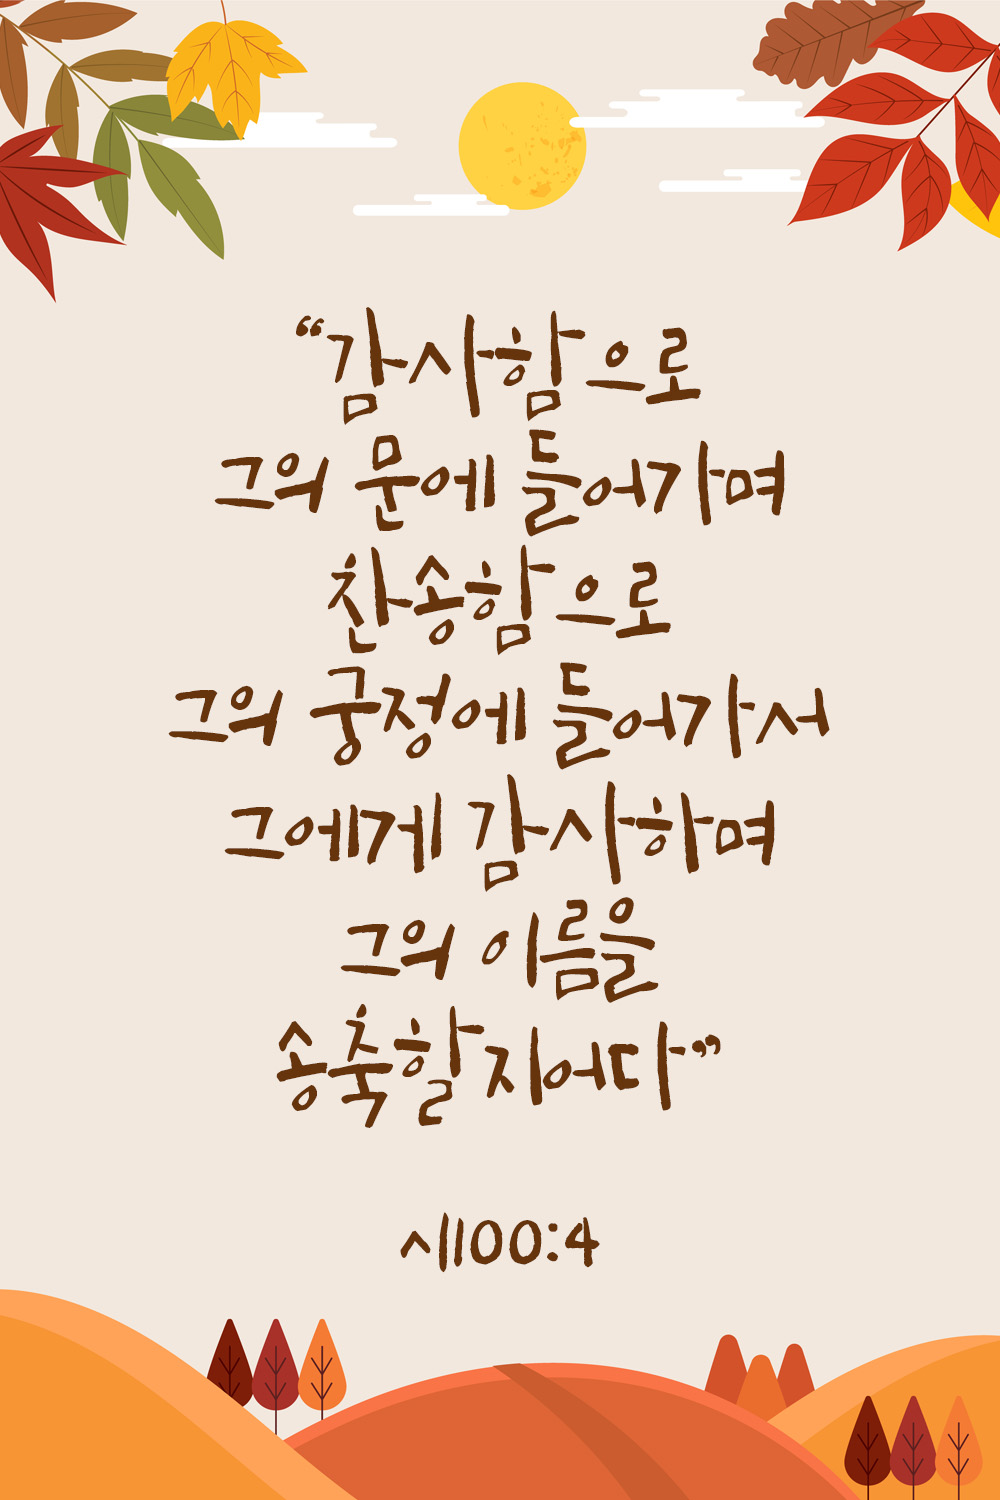 “감사함으로
그의 문에 들어가며
찬송함으로
그의 궁정에 들어가서
그에게 감사하며
그의 이름을
송축할지어다”
시100:4